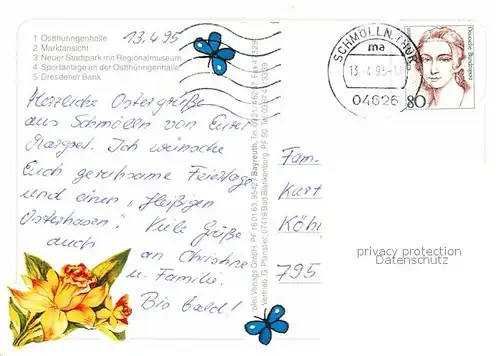 1 Ostthuringenhalle
2 Marktansicht
3 Neuer Stadtpark mit Regionalmuseum
4 Sportanlage an der Ostthüringenhalle
5 Dresdener Bank
13.4.95
Herzliche Ostergrüße
aus Schmölln von Eurer
Margret. Ich wünsche
Euch geruhsame Feiertage
und einen „fleißigen
Osterhasen". Viele Grüße
auch an Christine
u. Familie.
Bis bald!
Verlags GmbH, PF 16 01 63, 95427 Bayreuth, Tel.
Vertrieb: G. Pfanstiel, 07419 Bad Blankenburg, PF 50
SCHMÖLLN, THÜR
ma
13.-4.95
04626
Deutsche Bundespost
80
Fam.
Kurt
Köh
795
privacy protection
Datenschutz